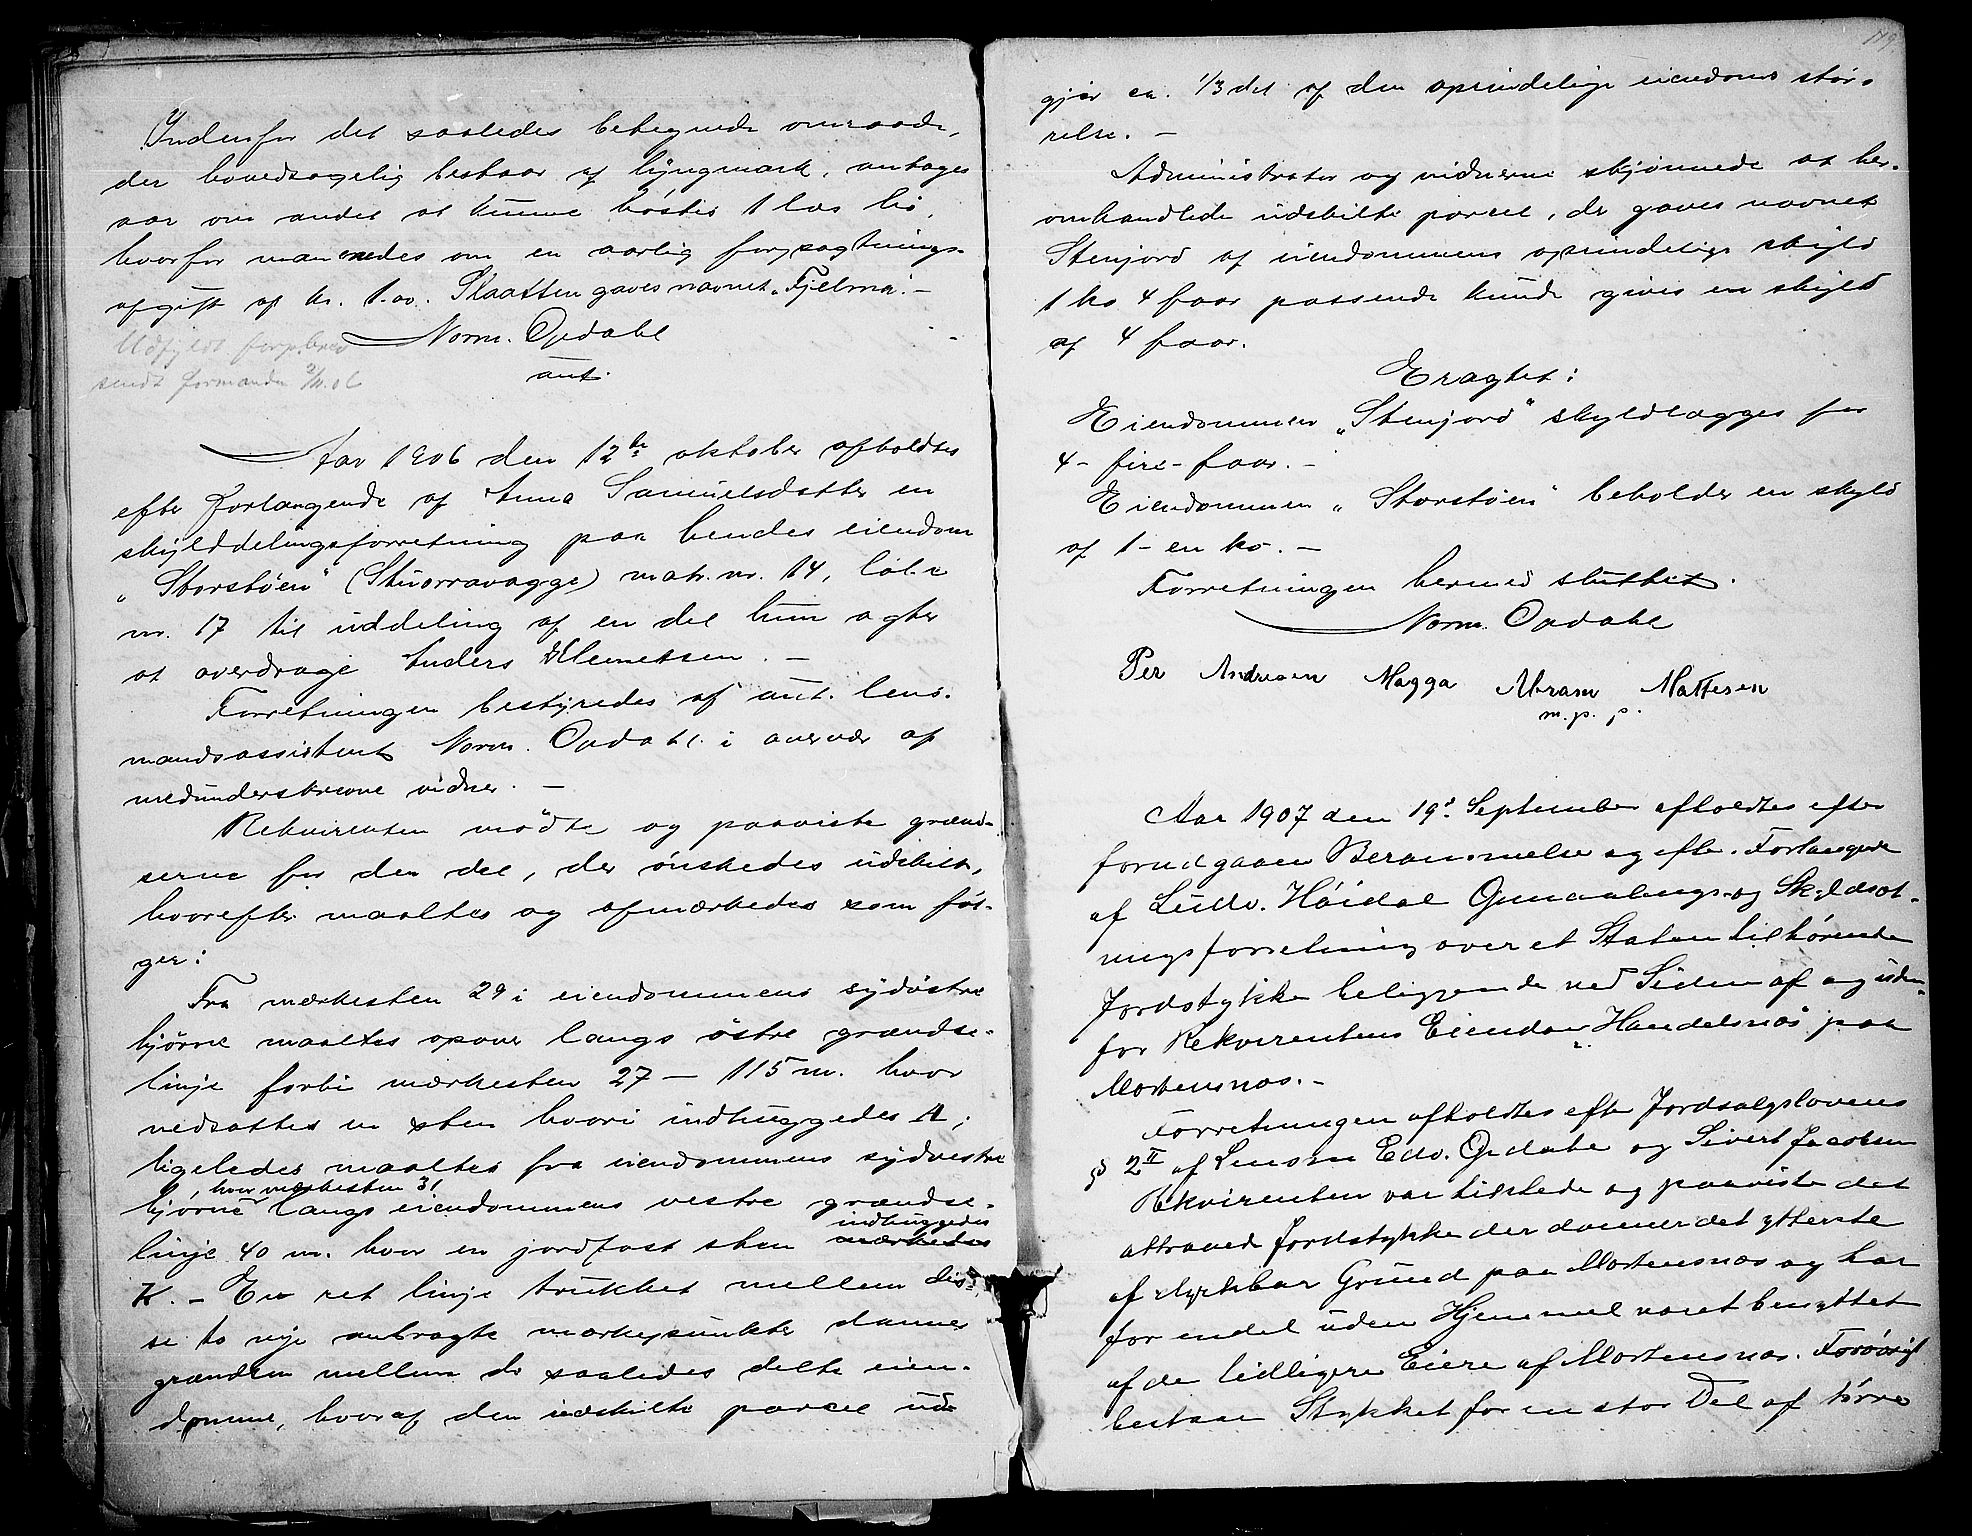 Indenfor det saaledes betegnede omraade,
der hovedsagelig bestaar af lyngmark, antages
aar om andet at kunne høstes 1 læs hø,
hvorfor man enedes om en aarlig forpagtnings-
afgift af kr. 1.00. Slaatten gaves navnet „Fjelmo“. –
Norm. Opdahl
aut.
Udfyldt forp.brev
sendt formanden 2/11.06
Aar 1906 den 12te oktober afholdtes
efter forlangende af Anna Samuelsdatter en
skylddelingsforretning paa hendes eiendom
„Storstøen“ (Stuorravagge) matr. nr. 14, løbe
nr. 17 til uddeling af en del hun agter
at overdrage Anders Klemetsen. –
Forretningen bestyredes af aut. lens-
mandsassistent Norm. Opdahl i overvær af
medunderskrevne vidner. –
Rekvirenten mødte og paaviste grænd-
serne for den del, der ønskedes udskilt,
hvorefter maaltes og afmærkedes som føl-
ger:
Fra mærkesten 29 i eiendommens sydøstre
hjørne maaltes opover langs østre grændse-
linje forbi mærkesten 27 – 115 m. hvor
nedsattes en sten hvori indhuggedes A;
ligeledes maaltes fra eiendommens sydvestre
hvor mærkesten 31
hjørne langs eiendommens vestre grændse-
indhuggedes
linje 40 m. hvor en jordfast sten mærkedes
K. – En ret linje trukket mellem dis-
se to nye anbragte mærkepunkter danner
grændsen mellem de saaledes delte eien-
domme, hvoraf den udskilte parcel ud-
179
gjør ca. 1/3 del af den oprindelige eiendoms stør-
relse. –
Administrator og vidnerne skjønnede at her-
omhandlede udskilte parcel, der gaves navnet
Stenjord af eiendommens oprindelige skyld
1 ko 4 faar passende kunde gives en skyld
af 4 faar.
Eragtet:
Eiendommen „Stenjord“ skyldlægges for
4 – fire – faar. –
Eiendommen „Storstøen“ beholder en skyld
af 1 – en ko. –
Forretningen hermed sluttet.
Norm. Opdahl
Per Andresen Magga Abram Mattesen
m. p. p.
Aar 1907 den 19de September afholdtes efter
forudgaaen Berammelse og efter Forlangende
af Ludv. Høidal Opmaalings- og Skyldsæt-
ningsforretning over et Staten tilhørende
Jordstykke beliggende ved Siden af og uden-
for Rekvirentens Eiendom „Handelsnæs“ paa
Mortensnæs. –
Forretningen afholdtes efter Jordsalgslovens
§ 2 II af Lensm Edv. Opdahl og Sivert Jacobsen
Rekvirenten var tilstede og paaviste det
attraaede Jordstykke der danner det ytterste
af dyrkbar Grund paa Mortensnæs og har
for endel uden Hjemmel været benyttet
af de tidligere Eiere af Mortensnæs. Forøvrigt
bestaar Stykket for en stor Del af tørre